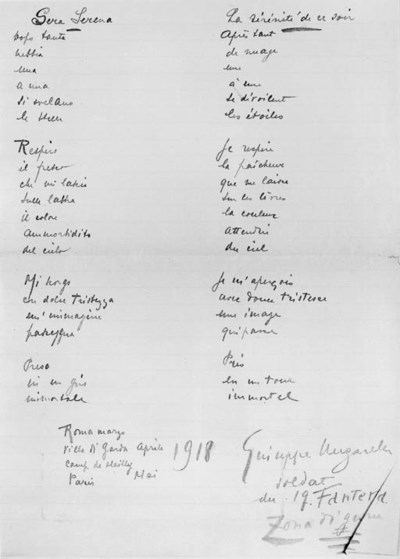 Sera Serena
Dopo tanta
nebbia
una
a una
si svelano
le stelle
Respiro
il fresco
che mi lascia
sulle labbra
il colore
ammorbidito
del cielo
Mi
dolce tristezza
un'immagine
passeggera
Preso
in un giro
immortale
La sérénité de ce soir
Après tant
de nuage
une
à une
se dévoilent
les étoiles
Je respire
la fraîcheur
que me laisse
sur les lèvres
la couleur
attendri
du ciel
Je m'aperçois
avec douce tristesse
une image
qui passe
Pris
en un tour
immortel
Roma marzo
di Garda Aprile
camp de Mailly Mai
Paris
1918
Giuseppe Ungaretti
soldat
du 19. Fanteria
Zona di guerra